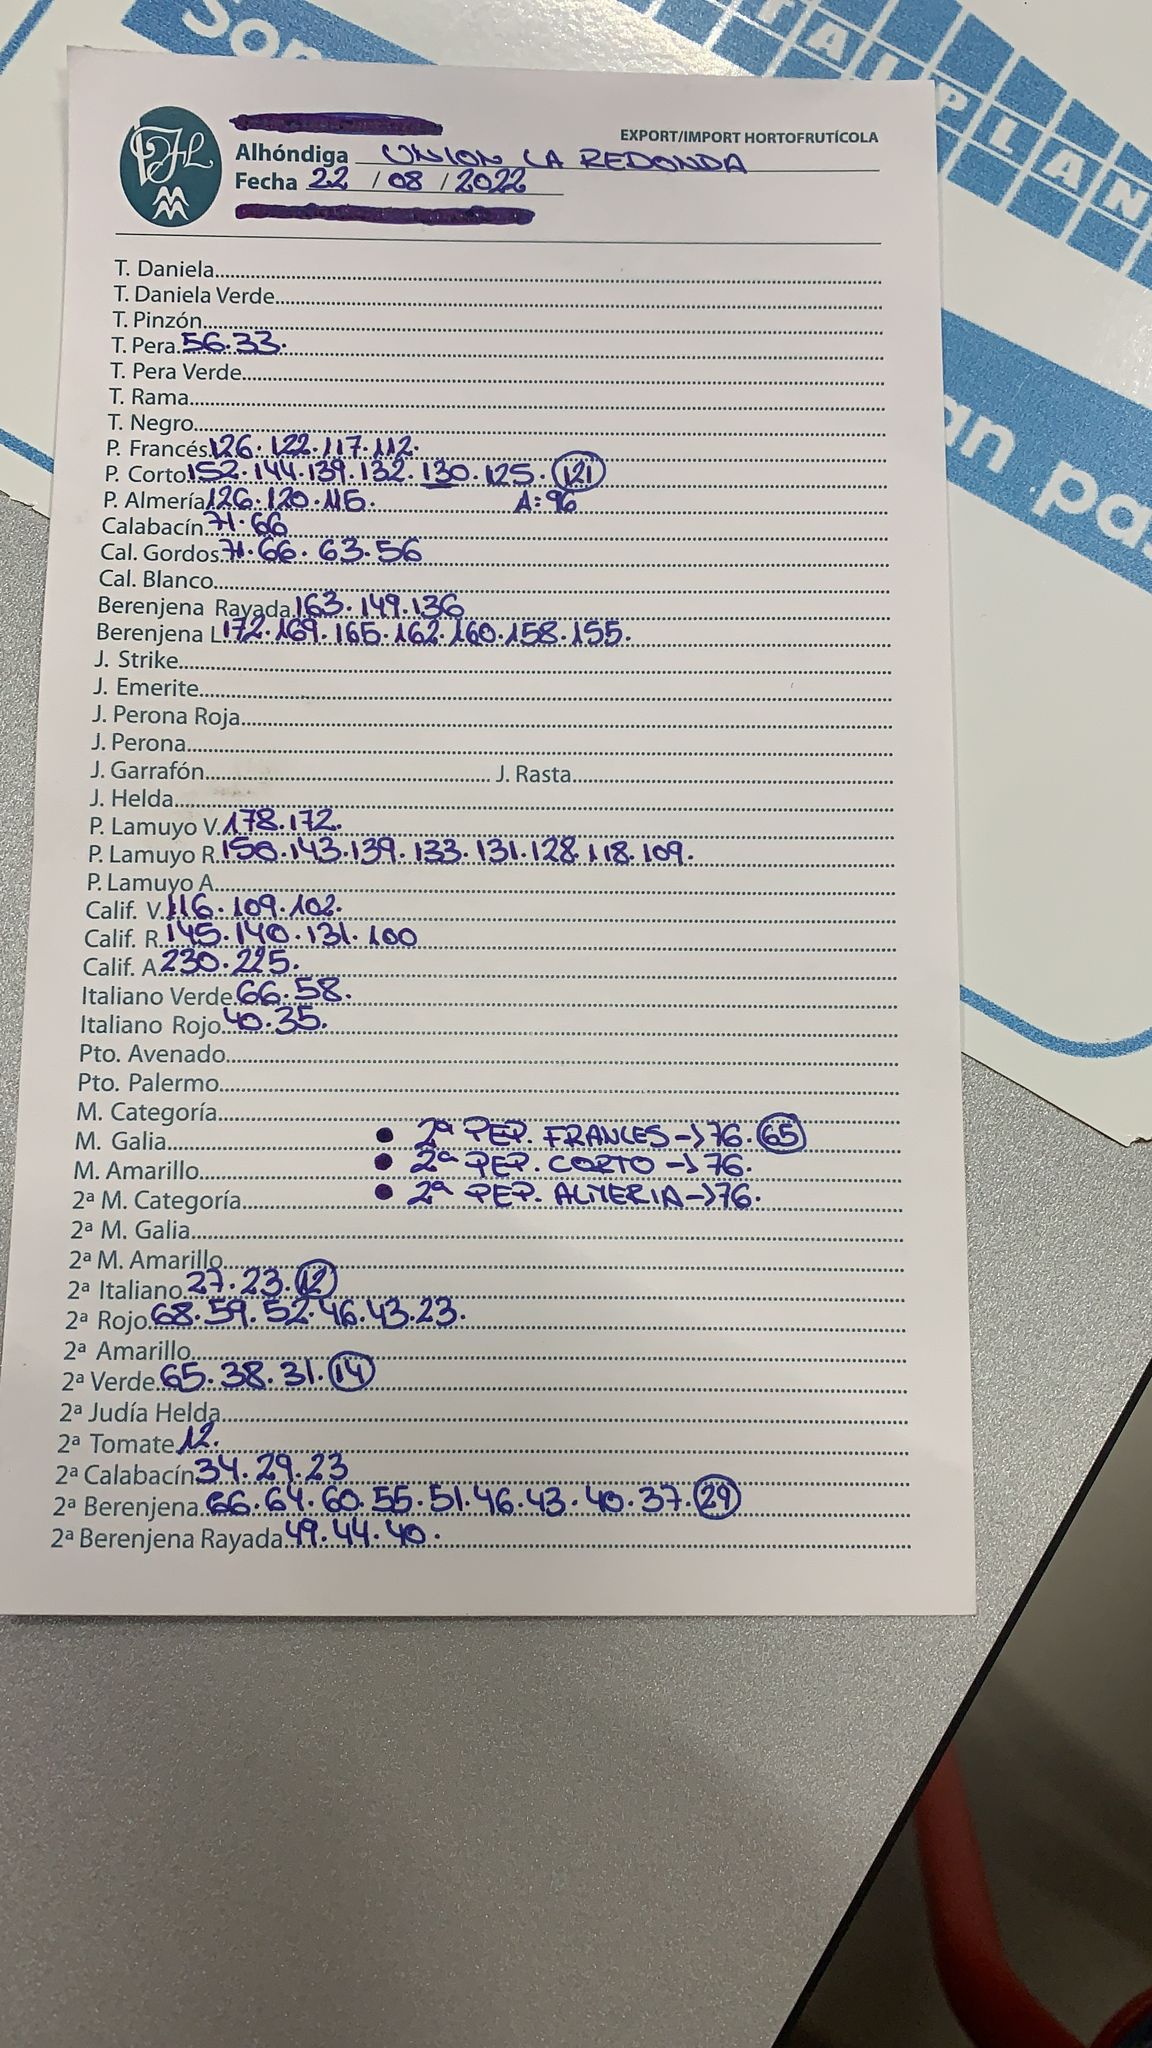 Son
TALPLAN
an pa
EXPORT/IMPORT HORTOFRUTÍCOLA
Alhóndiga UNION LA REDONDA
Fecha 22/08/2022
T. Daniela
T. Daniela Verde
T. Pinzón
T. Pera 56.33.
T. Pera Verde
T. Rama
T. Negro
P. Francés 126.122.117.112.
P. Corto 152.144.139.132.130.125.121
P. Almería 126.120.115. A:96
Calabacín 71.66
Cal. Gordos 71.66.63.56
Cal. Blanco
Berenjena Rayada 163.149.136
Berenjena L. 172.169.165.162.160.158.155.
J. Strike
J. Emerite
J. Perona Roja
J. Perona
J. Garrafón J. Rasta
J. Helda
P. Lamuyo V. 178.172.
P. Lamuyo R. 150.143.139.133.131.128.118.109.
P. Lamuyo A
Calif. V. 116.109.102.
Calif. R. 145.140.131.100
Calif. A 230.225.
Italiano Verde 66.58.
Italiano Rojo 40.35.
Pto. Avenado
Pto. Palermo
M. Categoría
M. Galia • 2ª PEP. FRANCES->76.65
M. Amarillo • 2ª PEP. CORTO->76.
2ª M. Categoría • 2ª PEP. ALMERIA->76.
2ª M. Galia
2ª M. Amarillo
2ª Italiano 27.23.12
2ª Rojo 68.59.52.46.43.23.
2ª Amarillo
2ª Verde 65.38.31.14
2ª Judía Helda
2ª Tomate 12.
2ª Calabacín 34.29.23
2ª Berenjena 66.64.60.55.51.46.43.40.37.29
2ª Berenjena Rayada 49.44.40.